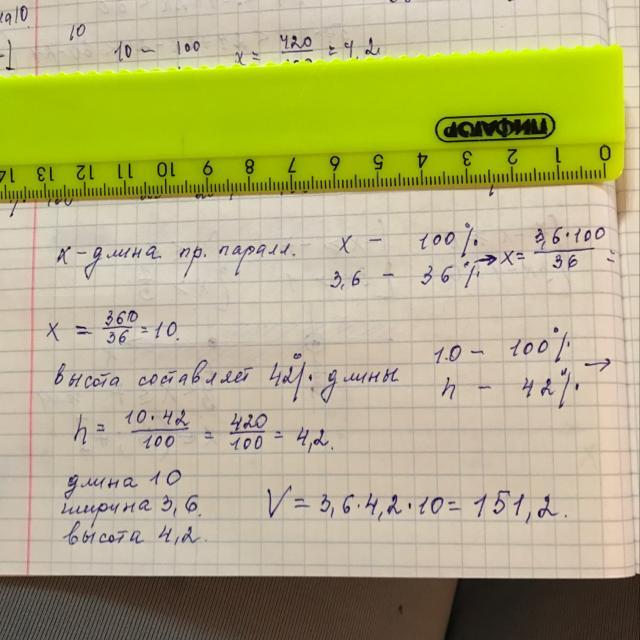 10
10 — 100 x = 420 = 4,2
ПИФАГОР
14 13 12 11 10 9 8 7 6 5 4 3 2 1 0
x - длина пр. паралл. x — 100%
3,6 — 36% → x = 3,6·100/36 =
x = 360/36 = 10.
высота составляет 42% длины 10 — 100%
h — 42% →
h = 10·42/100 = 420/100 = 4,2.
длина 10
ширина 3,6. V = 3,6·4,2·10 = 151,2.
высота 4,2.